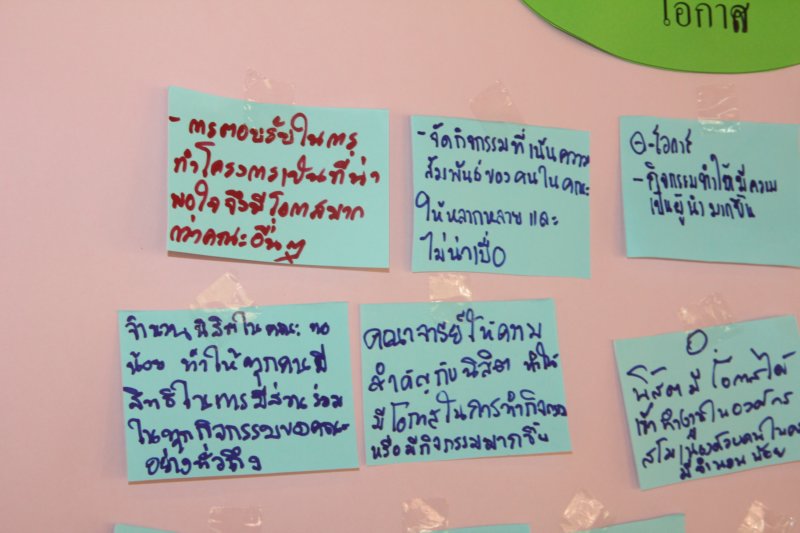 โอกาส
- การตอบรับในการ
ทำโครงการเป็นที่น่า
พอใจ จึงมีโอกาสมาก
กว่าคณะอื่นๆ
- จัดกิจกรรมที่เน้นความ
สัมพันธ์ของคนในคณะ
ให้หลากหลาย และ
ไม่น่าเบื่อ
- โอกาส
- กิจกรรมทำให้มีความ
เป็นผู้นำมากขึ้น
จำนวนนิสิตในคณะ
น้อย ทำให้ทุกคนมี
สิทธิในการมีส่วนร่วม
ในทุกกิจกรรมของคณะ
อย่างทั่วถึง
คณาจารย์ให้ความ
สำคัญกับนิสิต ทำให้
มีโอกาสในการทำกิจกรรม
หรือมีกิจกรรมมากขึ้น
O
นิสิตมีโอกาสได้
เข้าทำงานในองค์กร
สโมเนื่องด้วยคนในคณะ
มีจำนวนน้อย